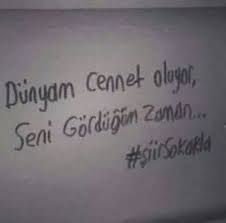 Dünyam Cennet oluyor,
Seni Gördüğüm Zaman...
#şiirSokakta